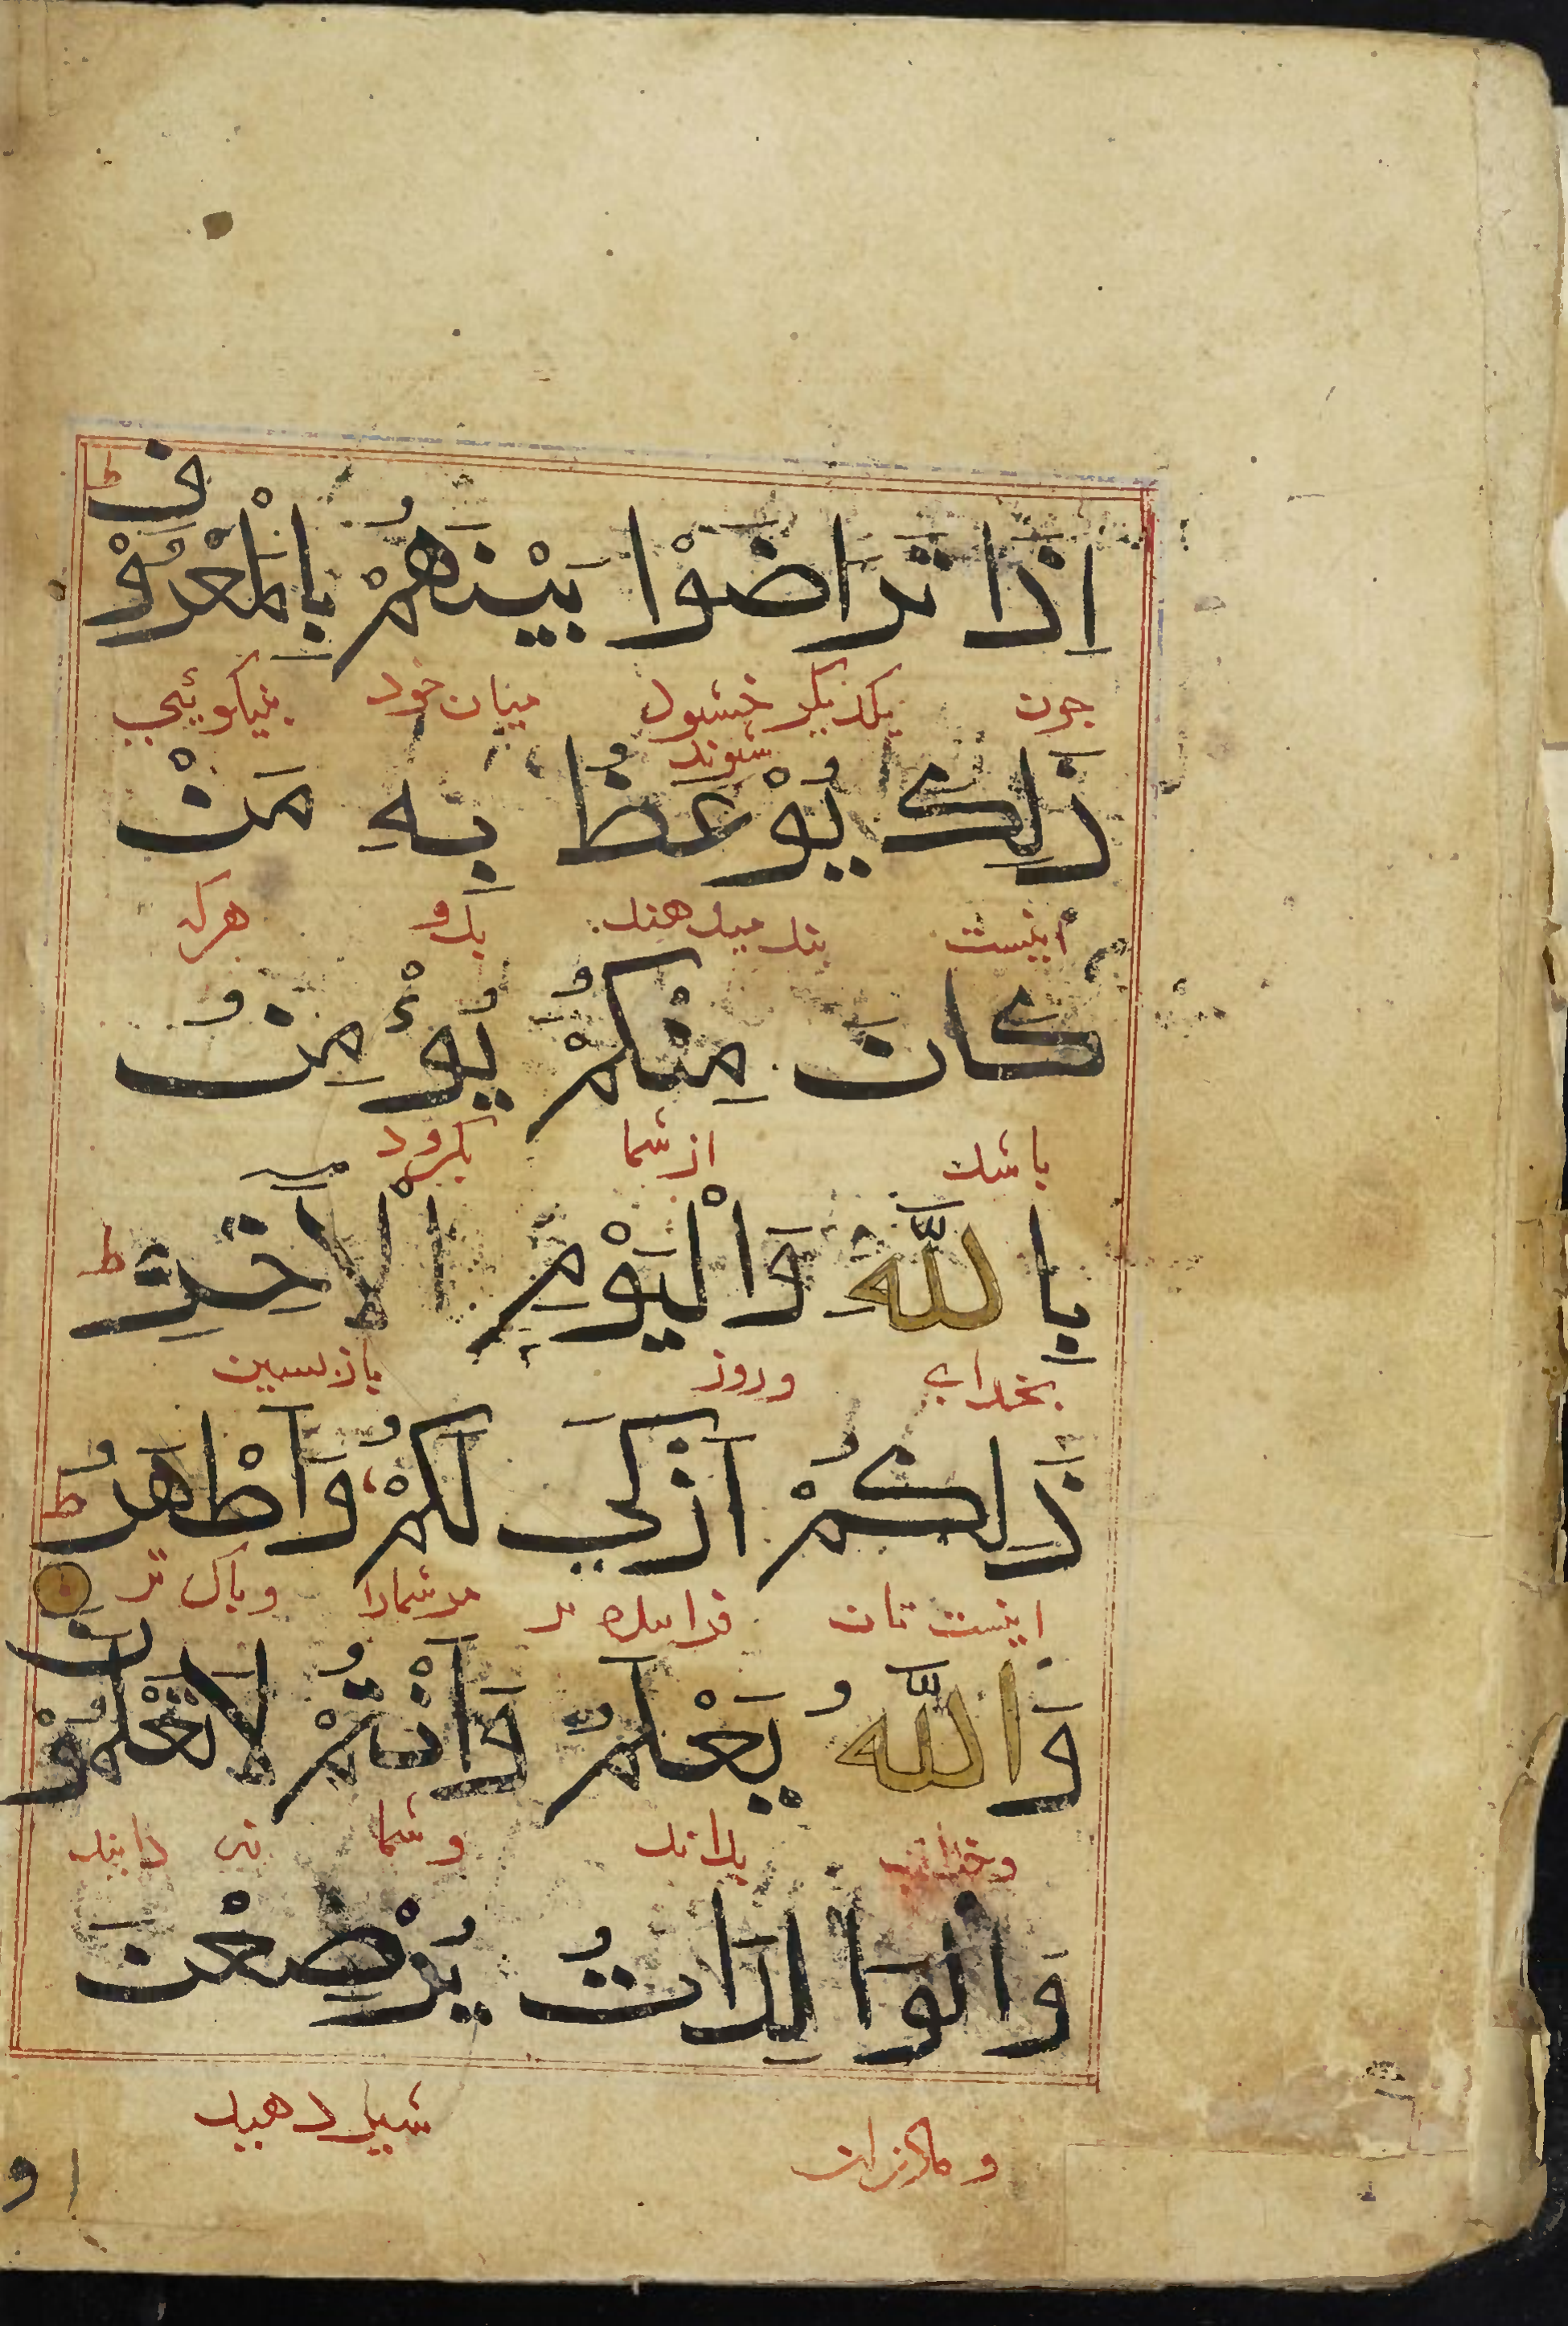 اِذَا تَرَاضَوْا بَيْنَهُمْ بِالْمَعْرُوْفِ ط
جون يكديكر خشنود شوند ميان خود بنيكويئي
ذَلِكَ يُوْعَظُ بِهِ مَنْ
اينست بند ميدهند بدو هرك
كَانَ مِنْكُمْ يُوْءْمِنُ
باشد از شما بكرود
بِاللَّهِ وَالْيَوْمِ الْآخِرِ ط
بخداي وروز بازبسين
ذَلِكُمْ اَزْكَي لَكُمْ وَاَطْهَرُ ط
اينست تان مر شمارا و باك تر
وَاللَّهُ يَعْلَمُ وَاَنْتُمْ لَا تَعْلَمُوْنَ
وخداي بداند و شما ني دانيد
وَالْوَالِدَاتُ يُرْضِعْنَ
و ماذران شير دهيد
او